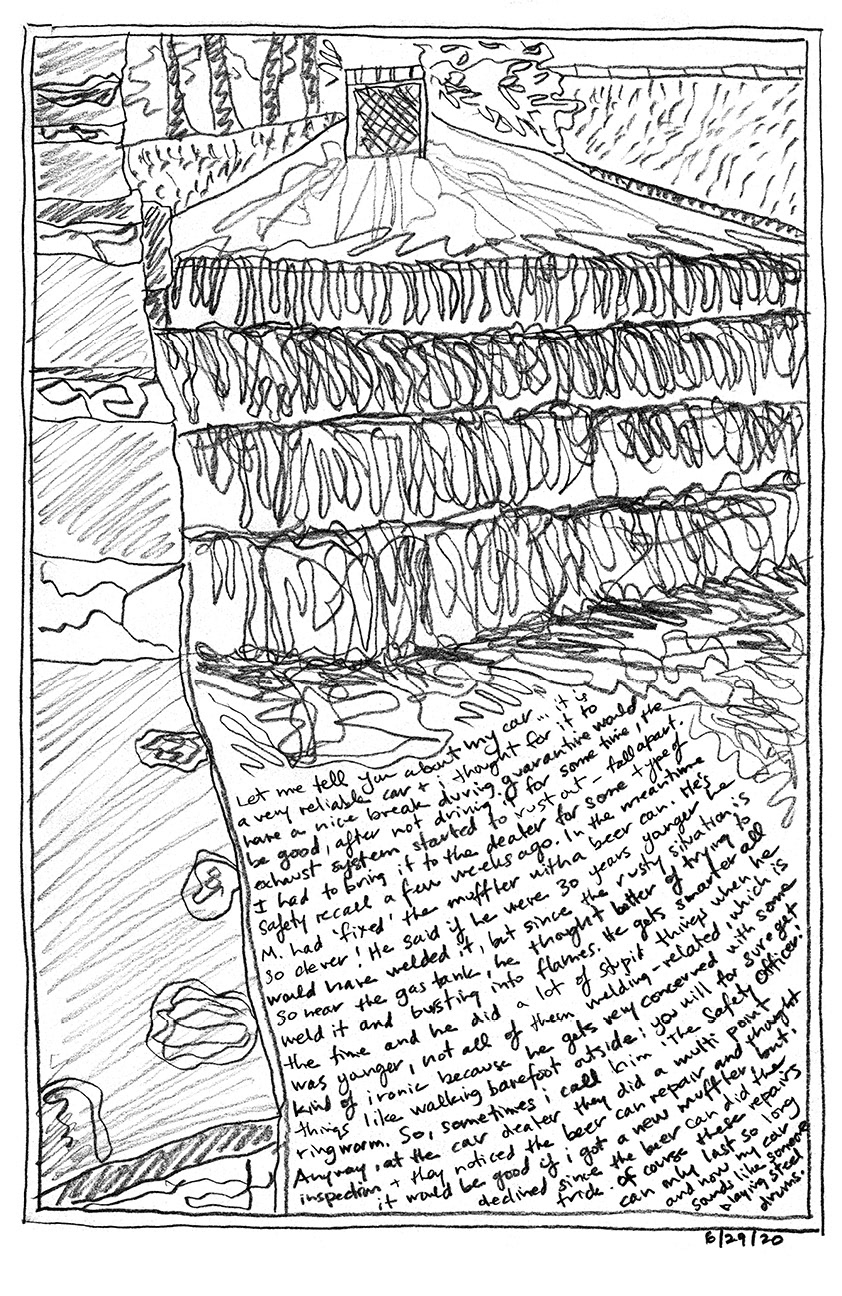 Let me tell you about my car... it is
a very reliable car + i thought for it to
have a nice break during quarantine would
be good, after not driving it for some time, the
exhaust system started to rust out - fall apart.
I had to bring it to the dealer for some type of
safety recall a few weeks ago. In the meantime
M. had 'fixed' the muffler with a beer can. He's
so clever! He said if he were 30 years younger he
would have welded it, but since the rusty situation is
so near the gas tank, he thought better of trying to
weld it and busting into flames. He gets smarter all
the time and he did a lot of stupid things when he
was younger, not all of them welding-related, which is
kind of ironic because he gets very concerned with some
things like walking barefoot outside: you will for sure get
ringworm. So, sometimes i call him 'The Safety Officer!'
Anyway, at the car dealer they did a multi point
inspection + they noticed the beer can repair and thought
it would be good if i got a new muffler but i
declined since the beer can did the
trick. Of course these repairs
can only last so long
and now my car
sounds like someone
playing steel
drums.
6/29/20